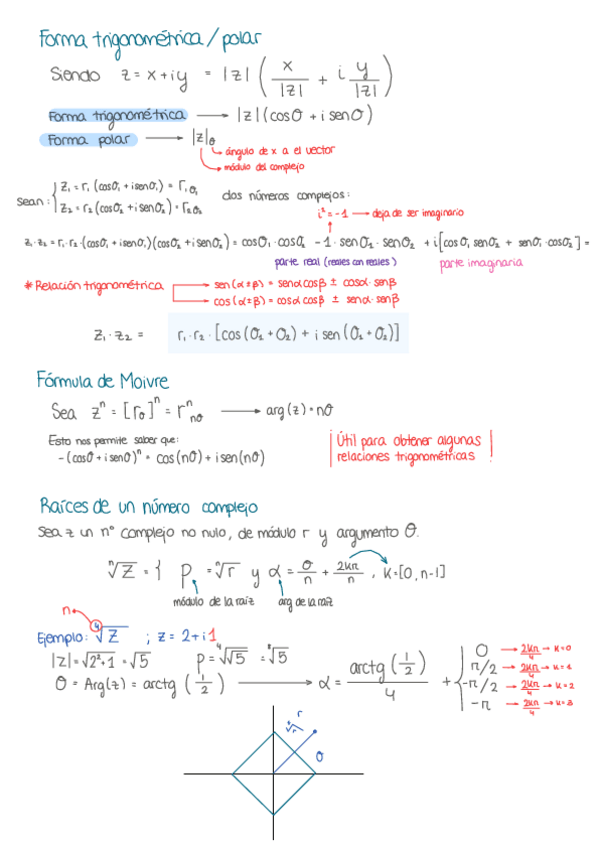 Forma trigonométrica / polar
Siendo z = x + iy = |z| ( x/|z| + i y/|z| )
Forma trigonométrica → |z| (cosθ + i senθ)
Forma polar → |z|θ
ángulo de x a el vector
módulo del complejo
Sean: { z₁ = r₁ (cosθ₁ + isenθ₁) = r₁θ₁
z₂ = r₂ (cosθ₂ + isenθ₂) = r₂θ₂
dos números complejos:
i² = -1 → deja de ser imaginario
z₁·z₂ = r₁·r₂·(cosθ₁ + isenθ₁)(cosθ₂ + isenθ₂) = cosθ₁·cosθ₂ - 1·senθ₁·senθ₂ + i[cosθ₁ senθ₂ + senθ₁·cosθ₂] =
parte real (reales con reales) parte imaginaria
* Relación trigonométrica → sen(α±β) = senα cosβ ± cosα·senβ
→ cos(α±β) = cosα cosβ ± senα·senβ
z₁·z₂ = r₁·r₂·[cos(θ₁+θ₂) + i sen(θ₁+θ₂)]
Fórmula de Moivre
Sea zⁿ = [rθ]ⁿ = rⁿnθ → arg(z)·nθ
Esto nos permite saber que:
- (cosθ + isenθ)ⁿ = cos(nθ) + isen(nθ)
Útil para obtener algunas
relaciones trigonométricas
Raíces de un número complejo
Sea z un nº complejo no nulo, de módulo r y argumento θ.
ⁿ√z = { P = ⁿ√r y α = θ/n + 2kπ/n , k=[0, n-1]
módulo de la raíz arg de la raíz
n
Ejemplo: ⁴√z ; z = 2+i1
|z| = √2²+1 = √5 P = ⁴√√5 = ⁸√5
θ = Arg(z) = arctg (1/2) → α = arctg(1/2)/4 +
0 → 2kπ/4 → k=0
π/2 → 2kπ/4 → k=1
-π/2 → 2kπ/4 → k=2
-π → 2kπ/4 → k=3
r
θ